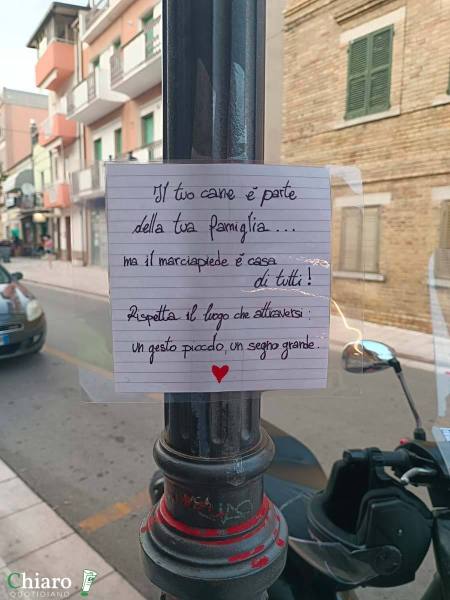 Il tuo cane è parte
della tua famiglia...
ma il marciapiede è casa
di tutti!
Rispetta il luogo che attraversi:
un gesto piccolo, un segno grande.
Chiaro
QUOTIDIANO